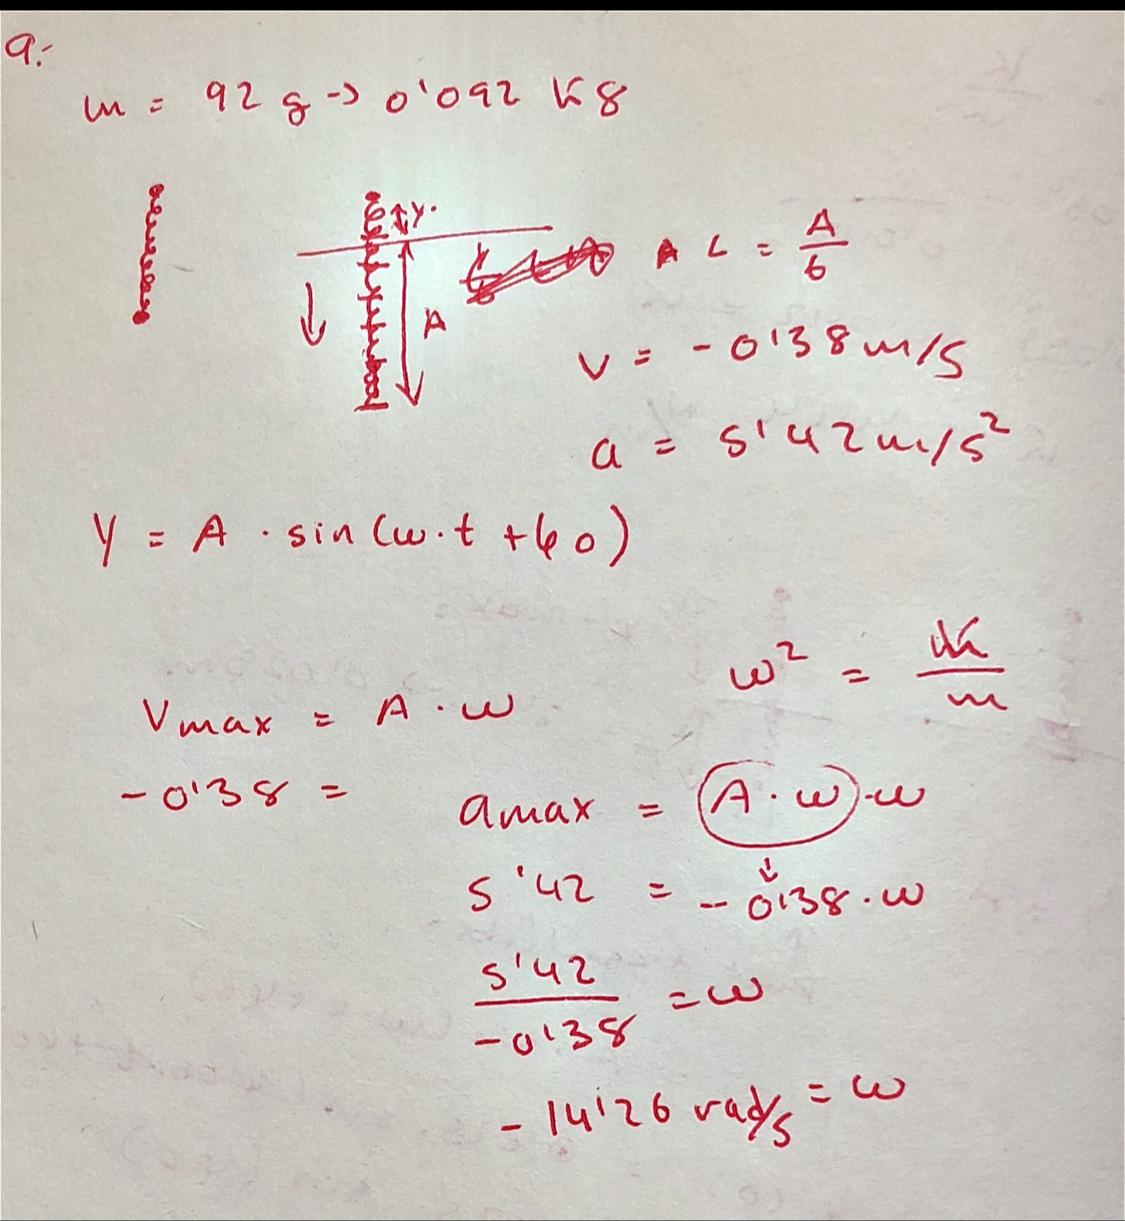 9.-
m = 92 g -> 0'092 Kg
Y.
A
A L = A/6
v = -0'38 m/s
a = 5'42 m/s²
Y = A · sin (ω·t + φ0)
ω² = K/m
Vmax = A · ω
-0'38 =
amax = (A · ω)·ω
↓
5'42 = -0'38·ω
5'42/-0'38 = ω
-14'26 rad/s = ω